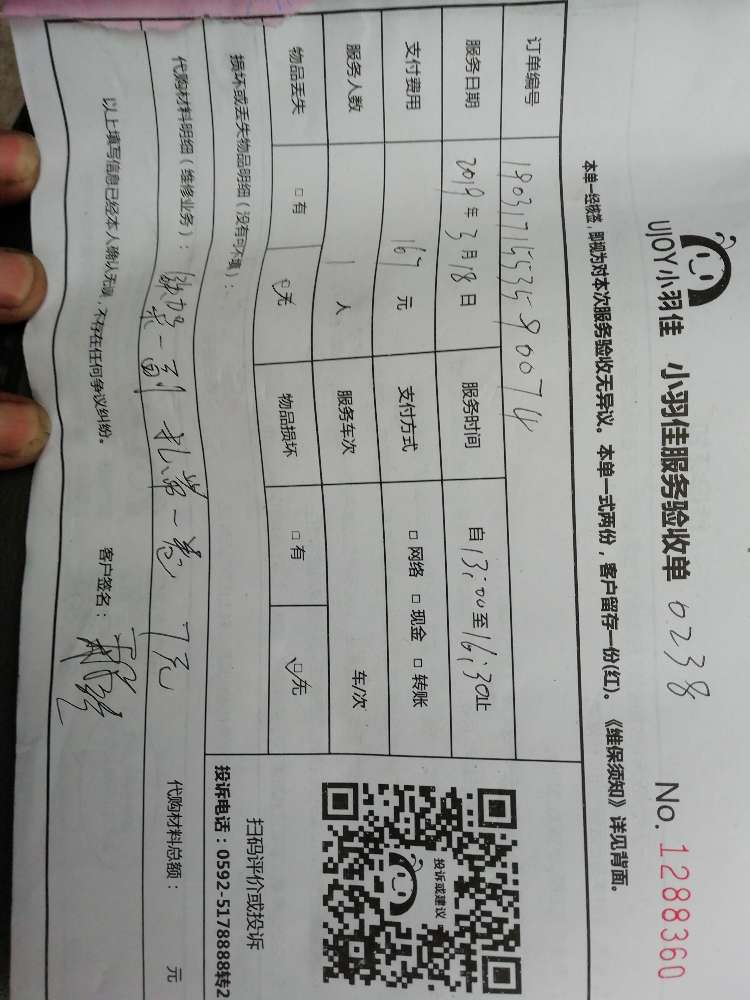 UJOY小羽佳 小羽佳服务验收单 0238 No. 1288360
本单一经核签，即视为对本次服务验收无异议。本单一式两份，客户留存一份(红)。《维保须知》详见背面。
订单编号 1903171553590074
服务日期 2019年3月18日 服务时间 自13:00至16:30止
支付费用 167元 支付方式 □网络 □现金 □转账
服务人数 1人 服务车次 车/次
物品丢失 □有 □无 物品损坏 □有 □无
损坏或丢失物品明细（没有可不填）：
投诉或建议
扫码评价或投诉
投诉电话：0592-5178888转2
代购材料明细（维修业务）： 一副 一卷 7元 代购材料总额： 元
以上填写信息已经本人确认无误，不存在任何争议纠纷。 客户签名：